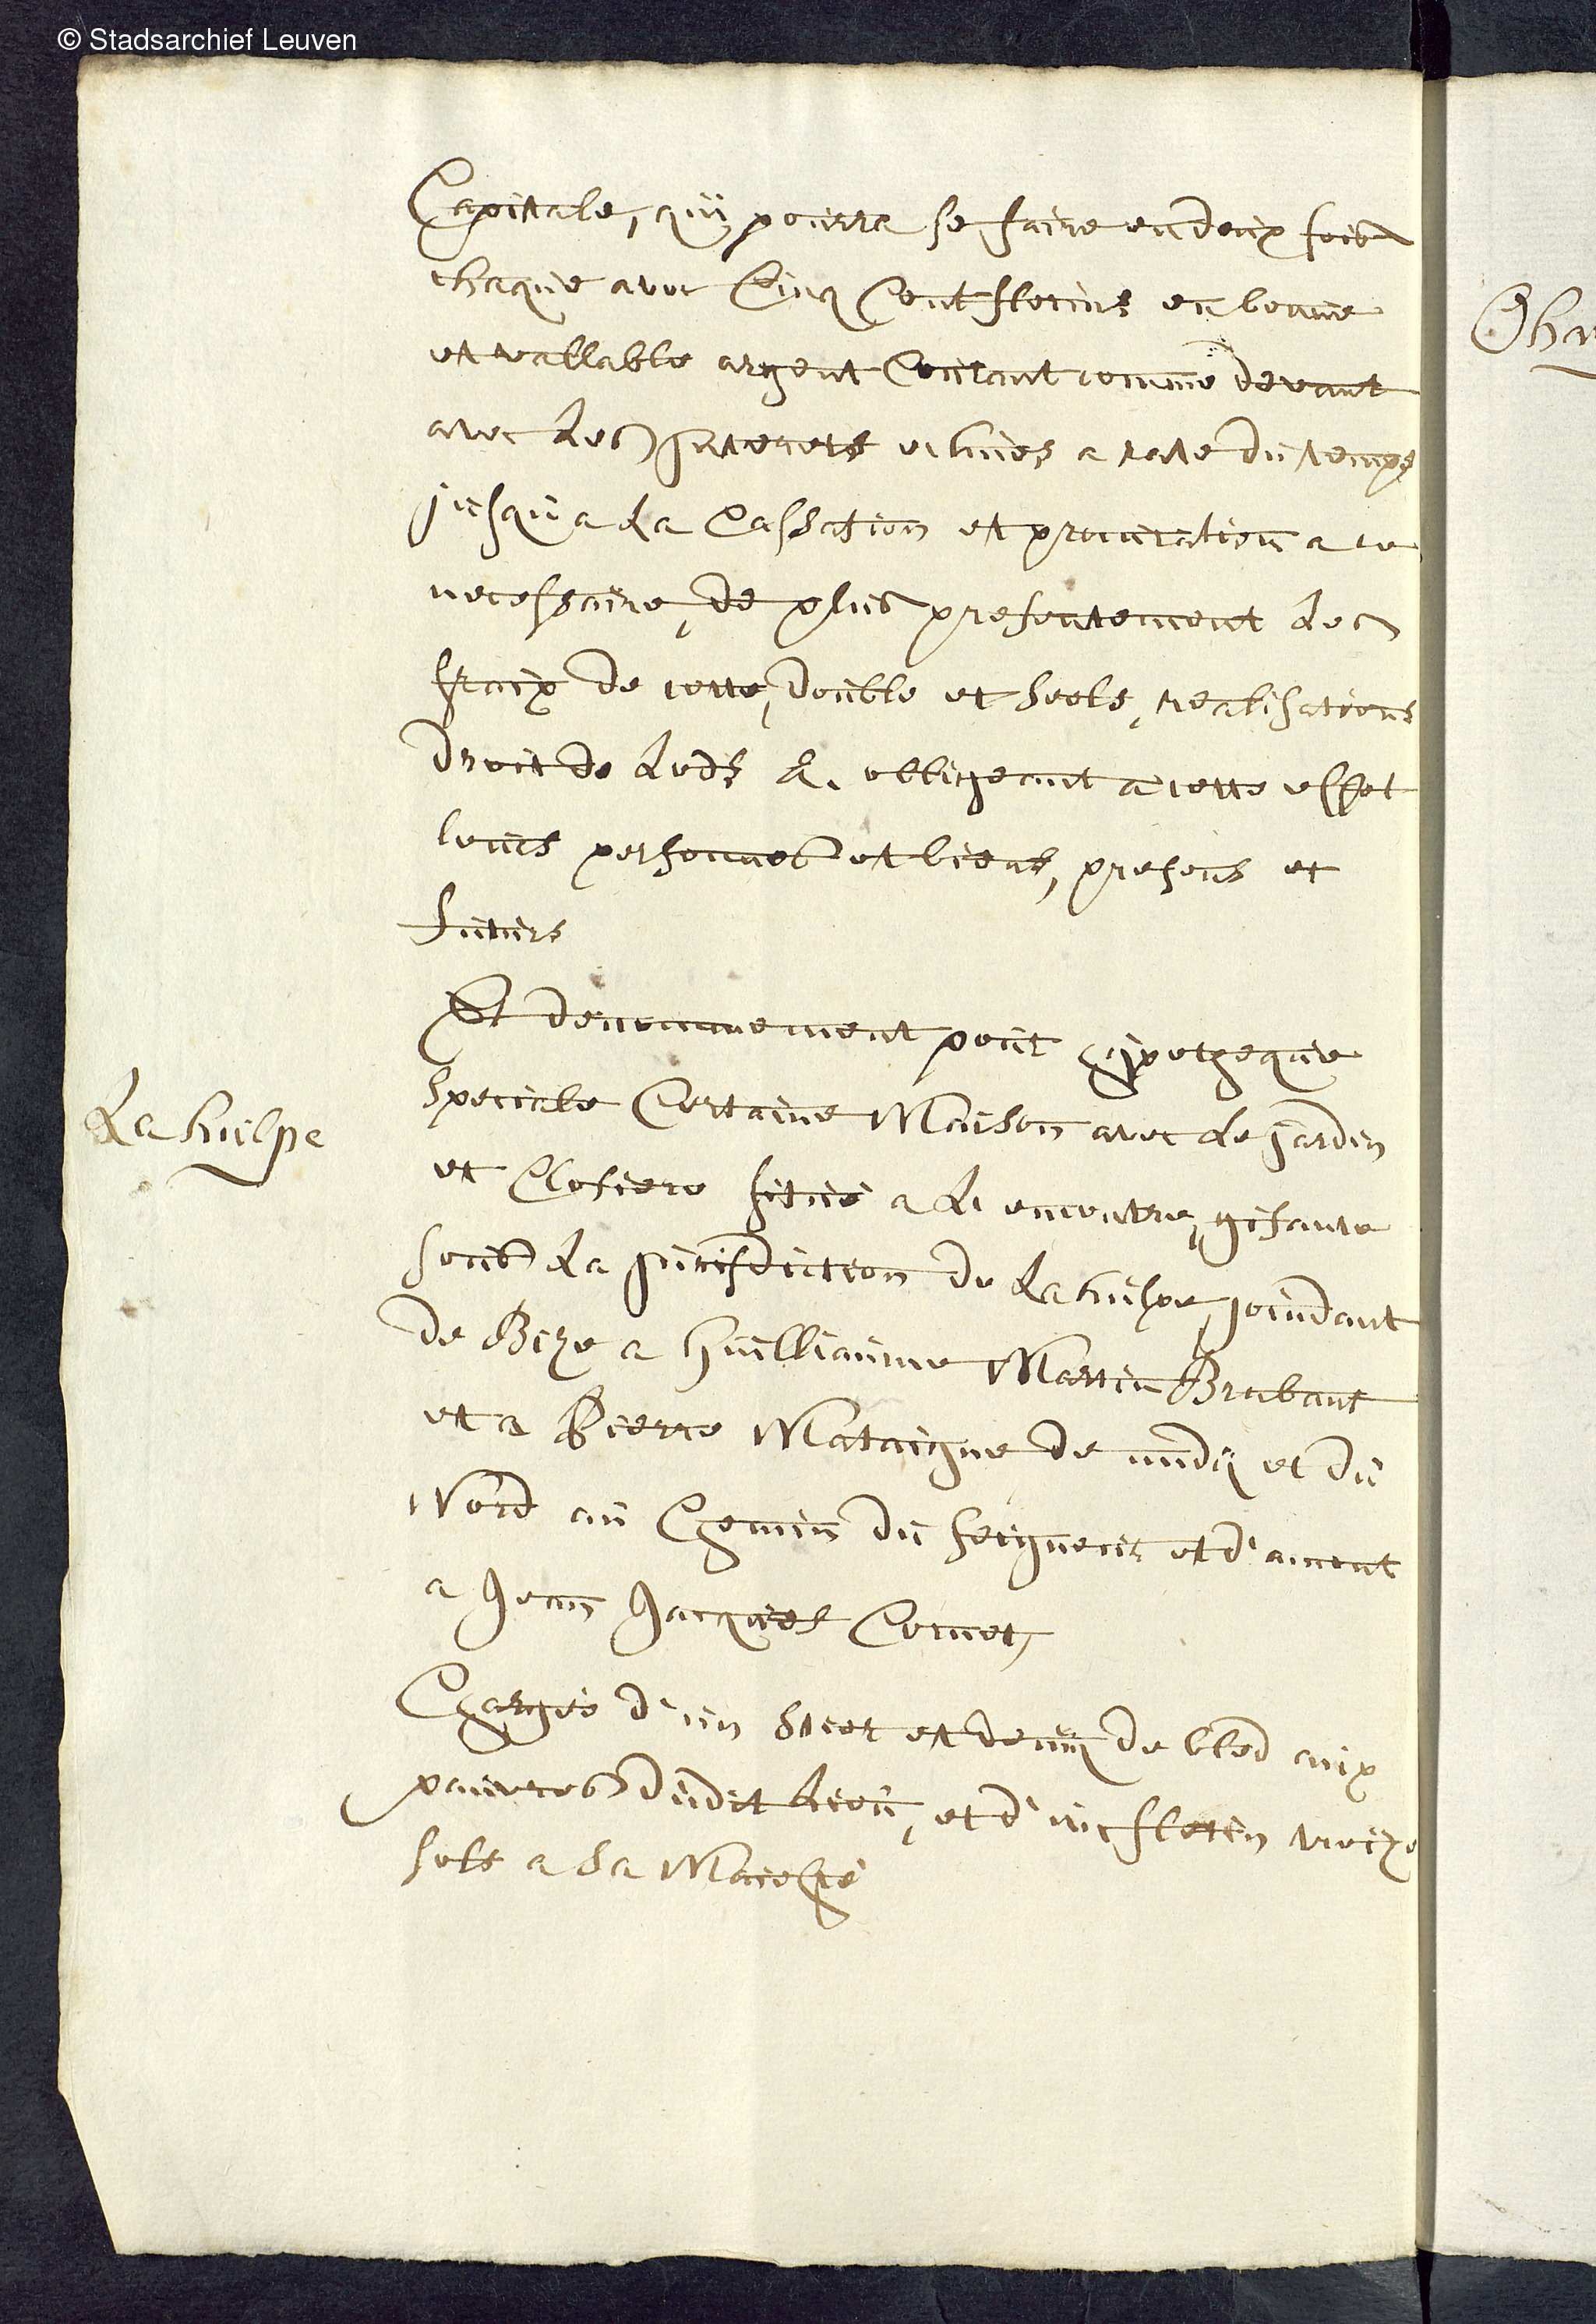 © Stadsarchief Leuven
Capitale, quÿ pourra se faire en deux fois
chaque avec Cinq Cent florins en bonne
et vallable argent Courant comme devant
avec les Interets echues a rate du temps
jusqu'a la Cassation et procuration a ce
necessaire, de plus presentement les
fraix de cette, double et seels, realisations
droit de Lods &. obligeant a cette effet
leurs personnes et biens, presens et
futurs
Et denommement pour hypotheque
speciale Certaine Maison avec le jardin
La hulpe
et Closiere situé a l'encontre, gisante
sous la Jurisdiction de La hulpe, joindant
de Bize a Guilliaume Martin Brabant
et a Pierre Mataigne de midÿ et du
Nord au Chemin du seigneur et d'amont
a Jean Jacques Cornet,
Chargés d'un stier et demÿ de bled aux
pauvres dudit lieu, et d'un florin treize
sols a sa Majesté
Oha